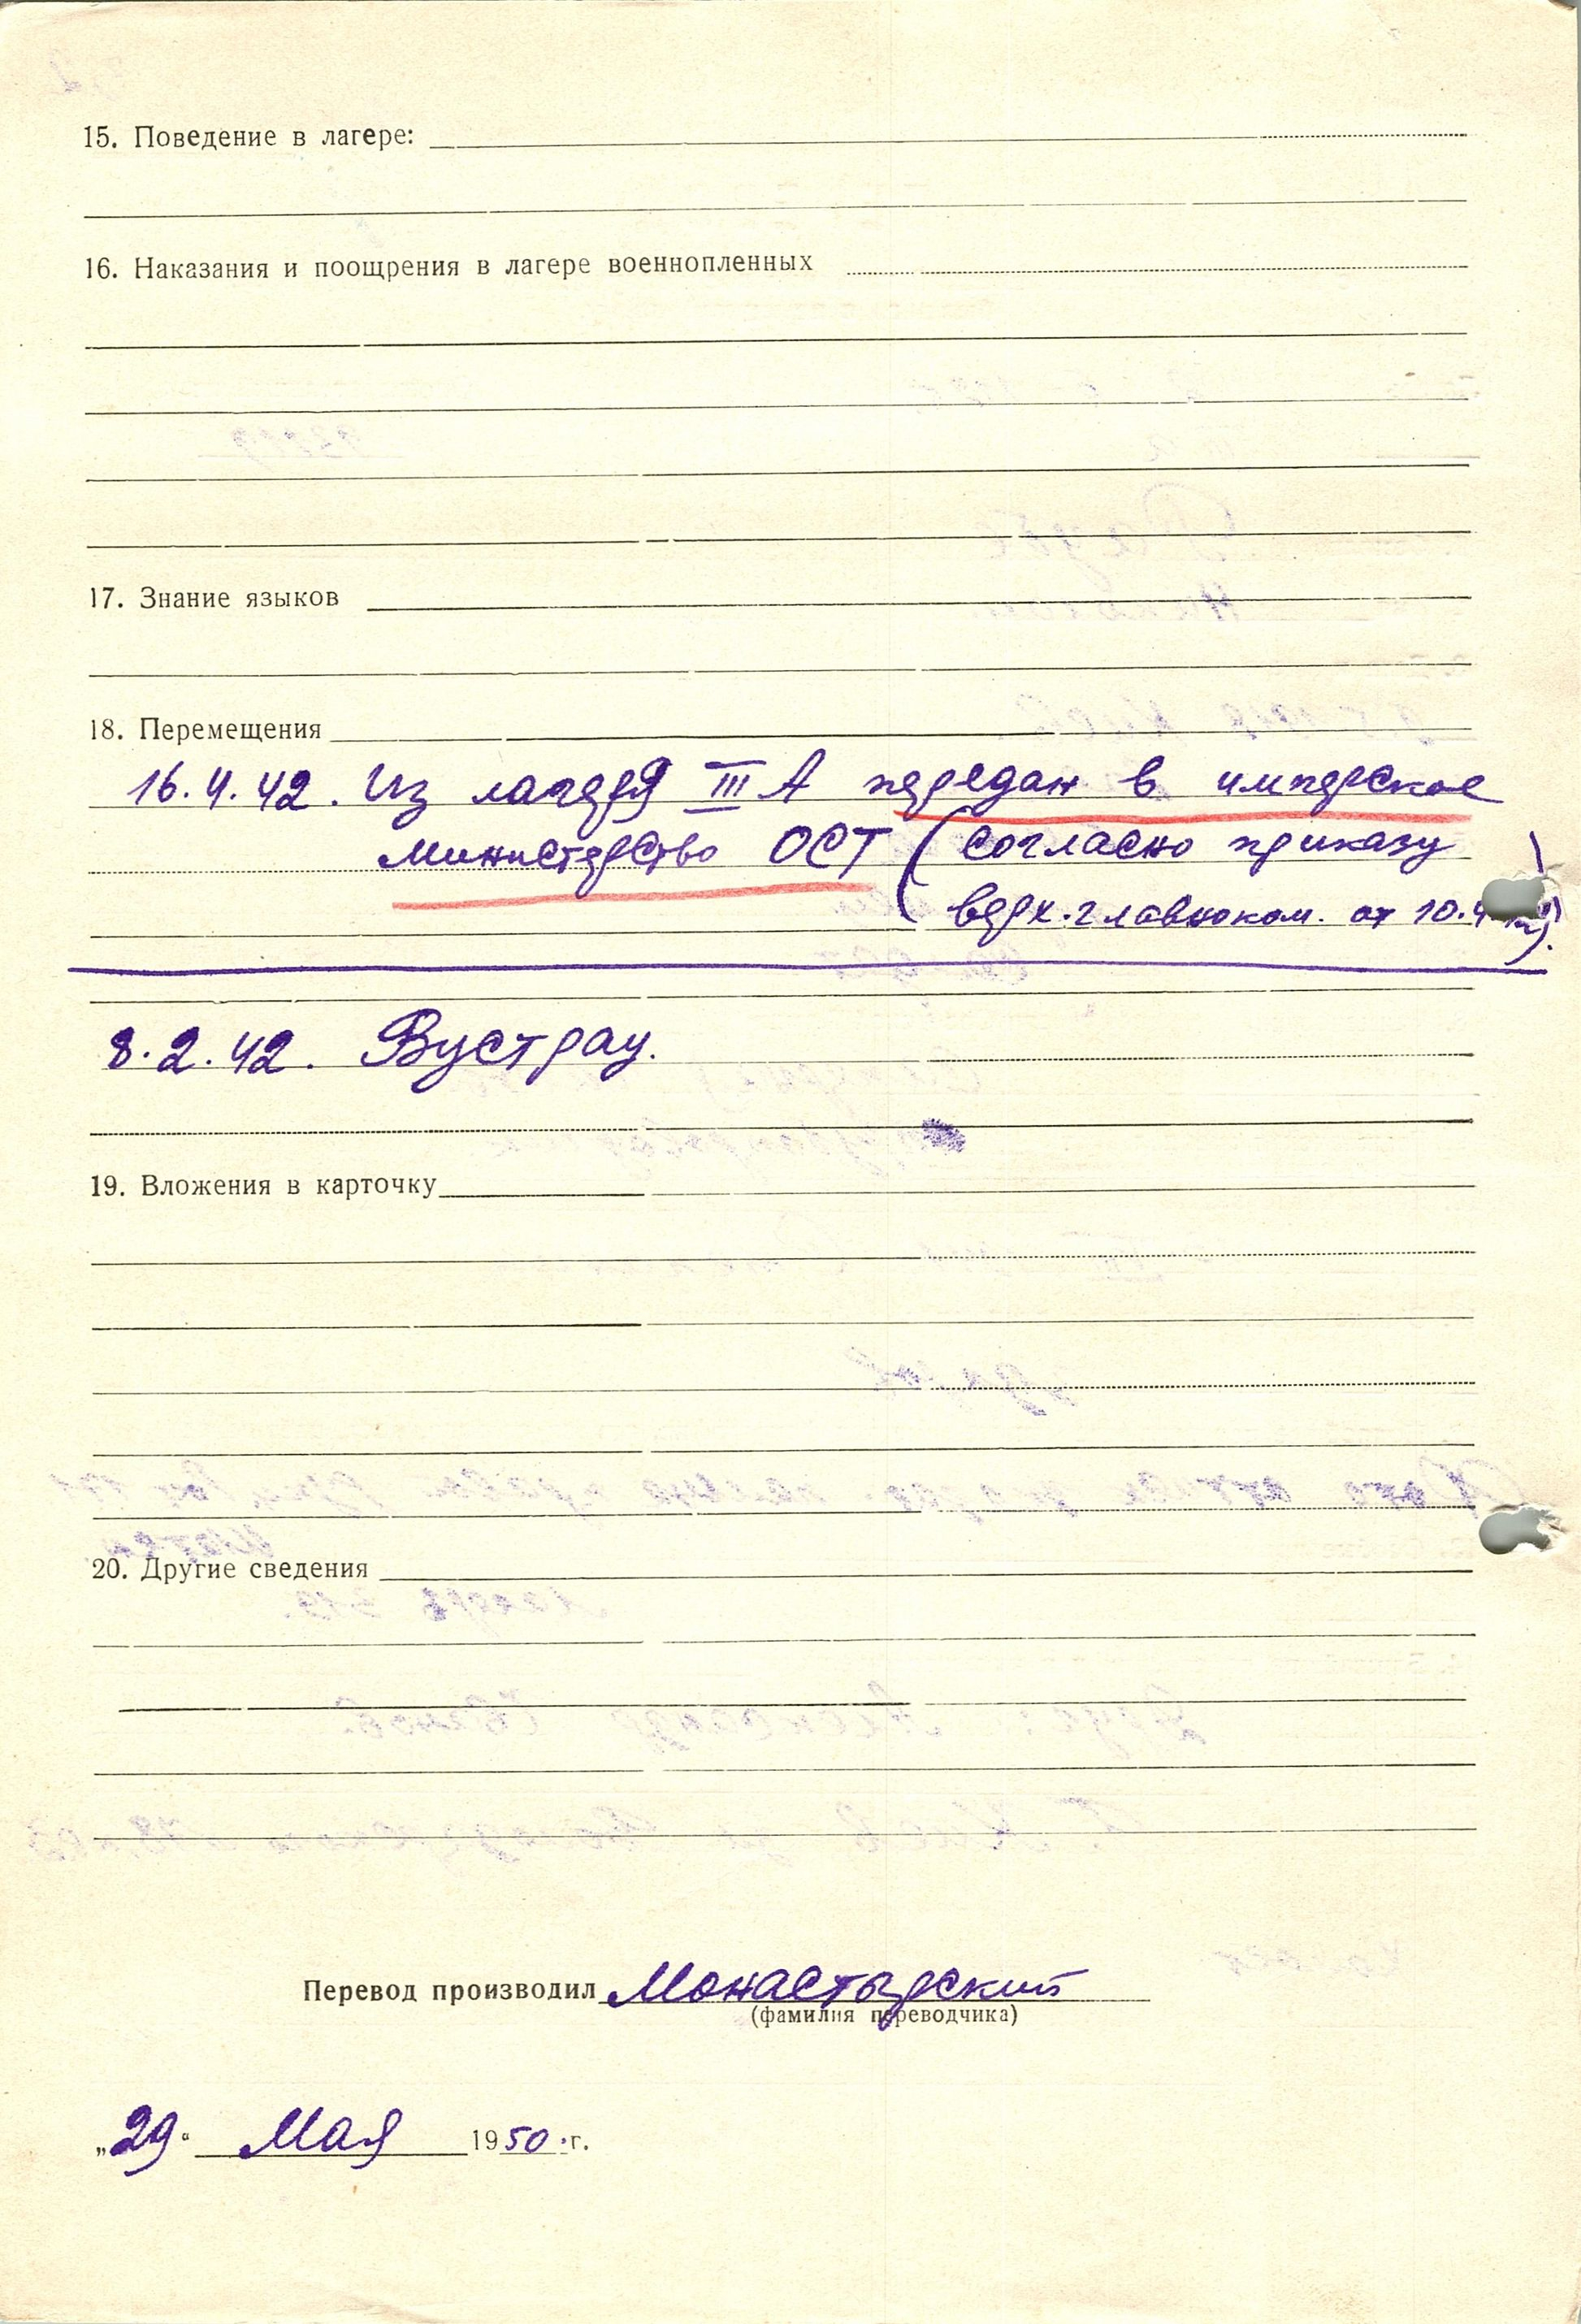 15. Поведение в лагере:
16. Наказания и поощрения в лагере военнопленных
17. Знание языков
18. Перемещения
16.4.42. Из лагеря III А передан в имперское
министерство ОСТ (согласно приказу
верх. главноком. от 10.4.
8.2.42. Вустрау.
19. Вложения в карточку
20. Другие сведения
Перевод производил Монастырский
(фамилия переводчика)
„29“ Мая 1950.г.